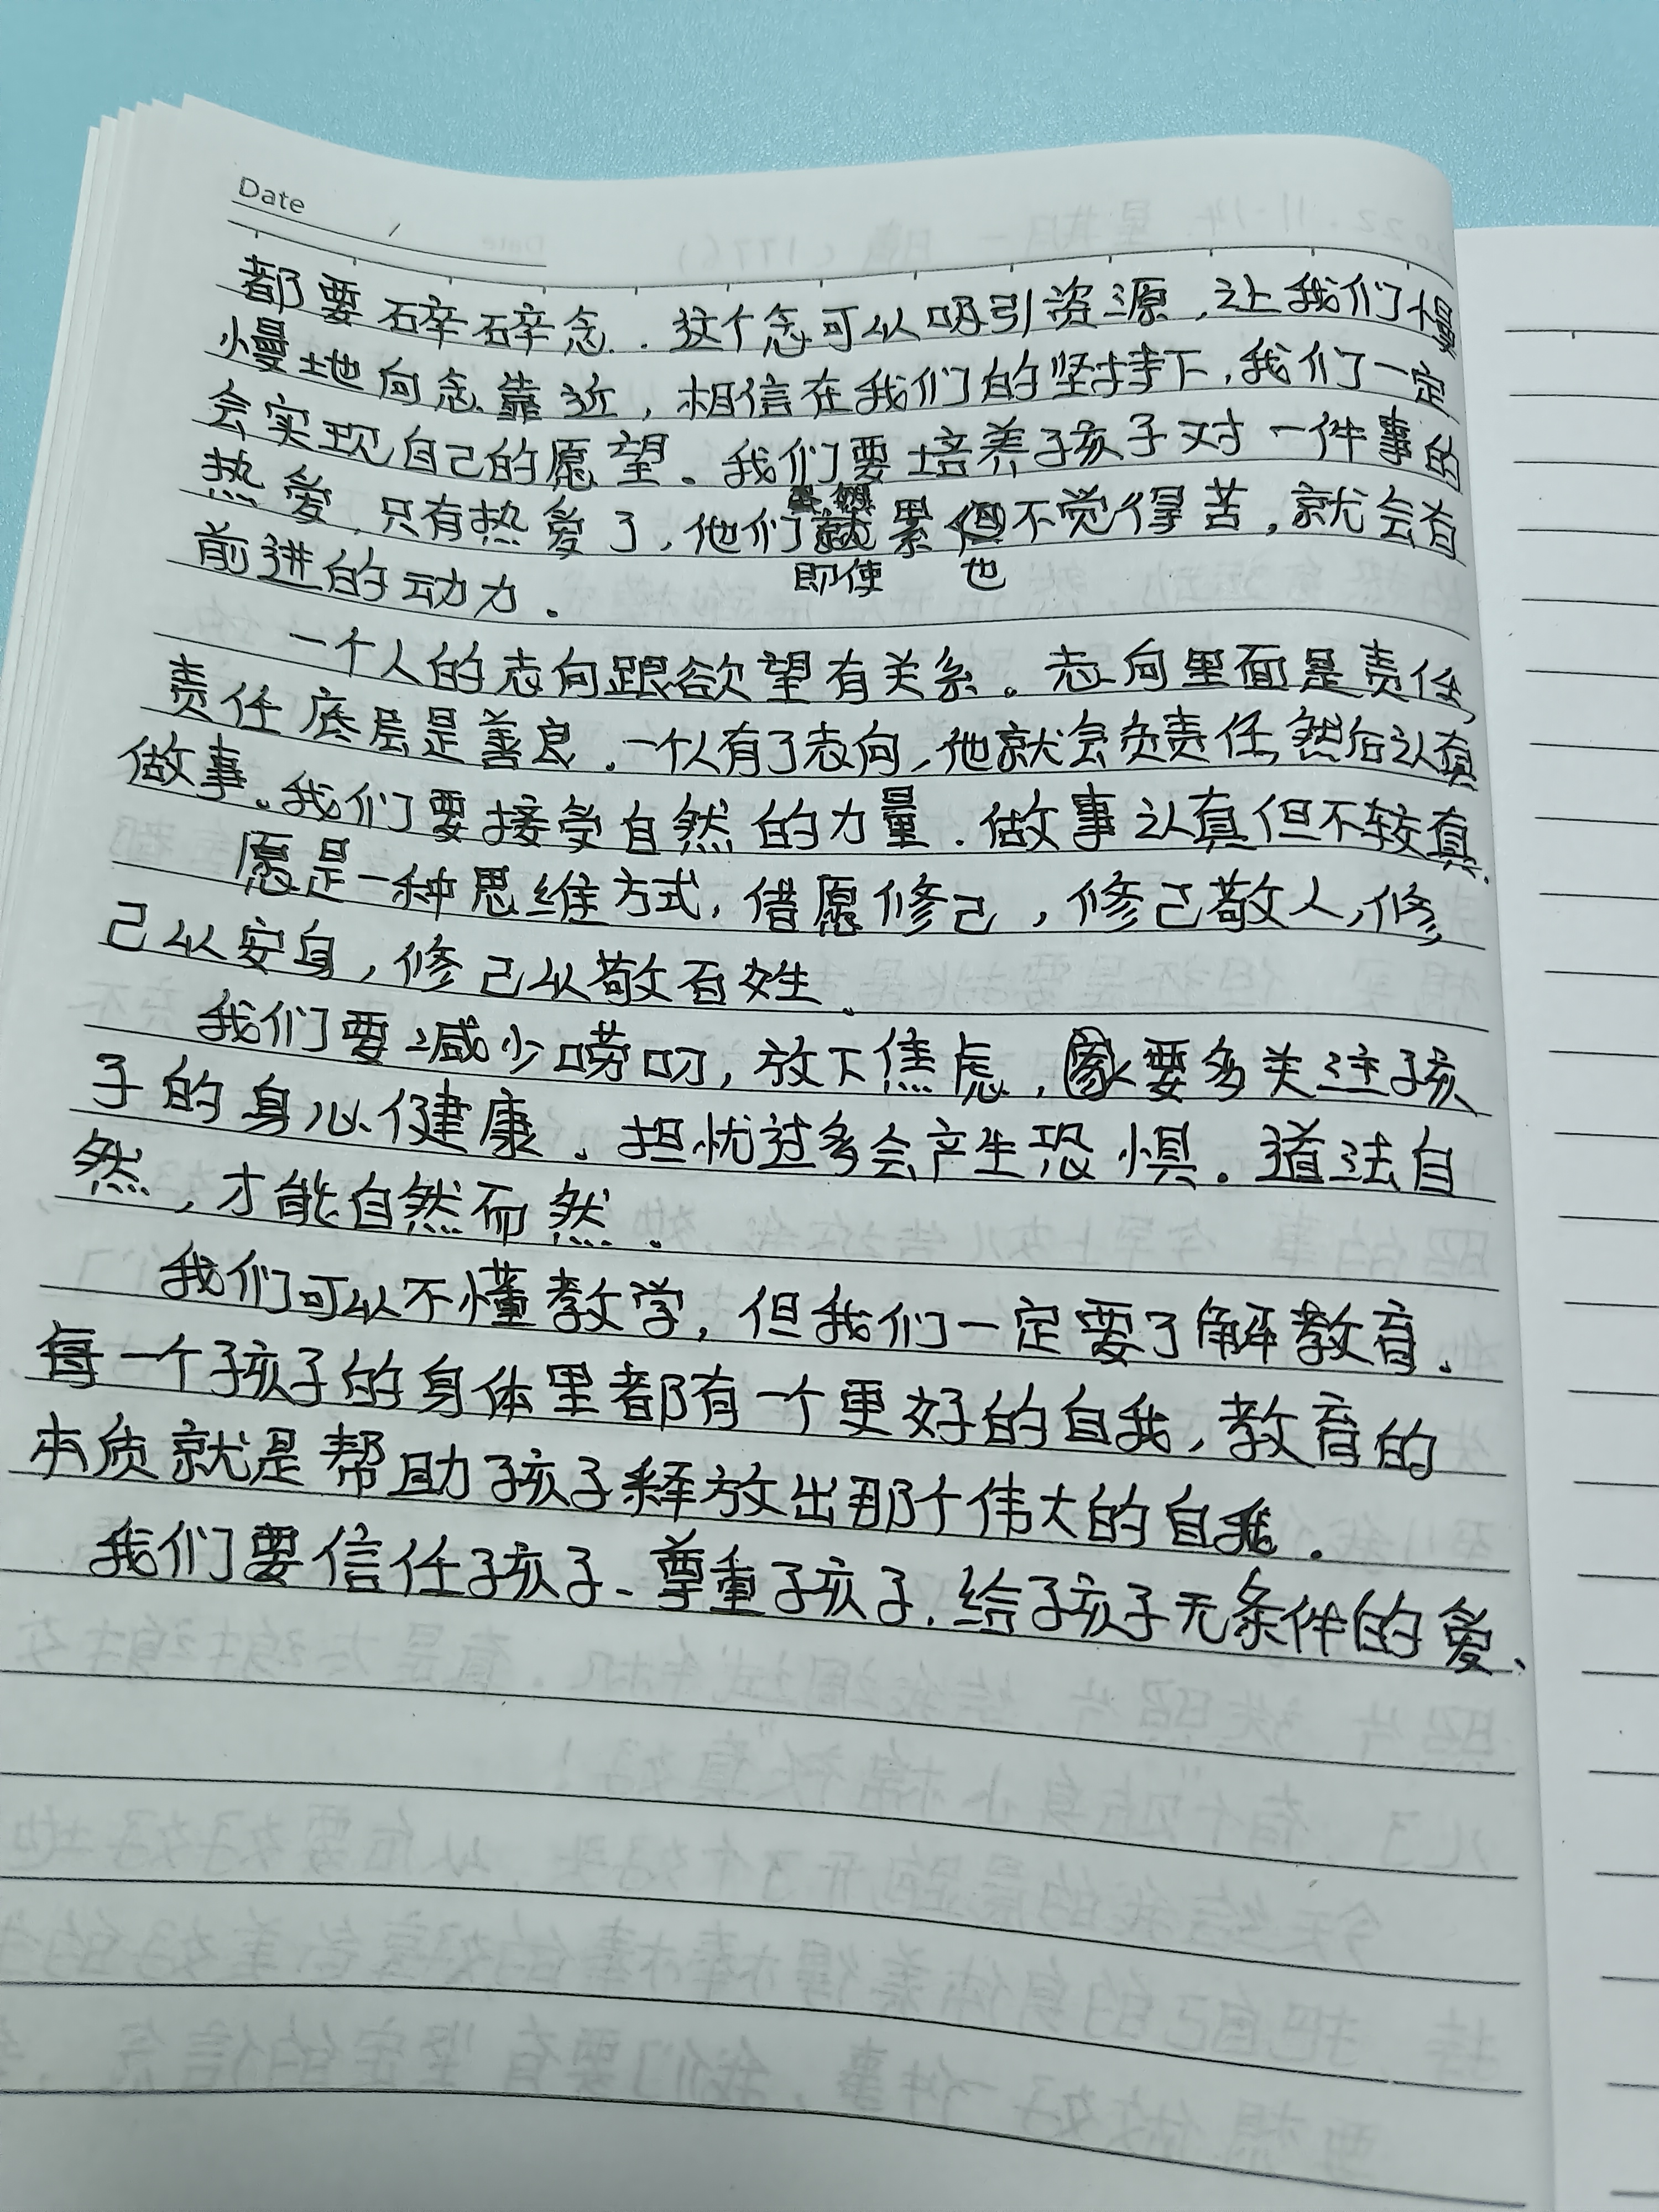 Date
都要碎碎念.这个念可以吸引资源,让我们慢
慢地向念靠近,相信在我们的坚持下,我们一定
会实现自己的愿望。我们要培养孩子对一件事的
热爱,只有热爱了,他们即使累也不觉得苦,就会有
前进的动力.
一个人的志向跟欲望有关系。志向里面是责任,
责任底层是善良.一个人有了志向,他就会负责任,然后认真
做事。我们要接受自然的力量.做事认真但不较真.
愿是一种思维方式,借愿修己,修己敬人,修
己以安身,修己以敬百姓.
我们要减少唠叨,放下焦虑,要多关注孩
子的身心健康.担忧过多会产生恐惧。道法自
然,才能自然而然.
我们可以不懂教学,但我们一定要了解教育.
每一个孩子的身体里都有一个更好的自我,教育的
本质就是帮助孩子释放出那个伟大的自我.
我们要信任孩子、尊重孩子.给孩子无条件的爱、